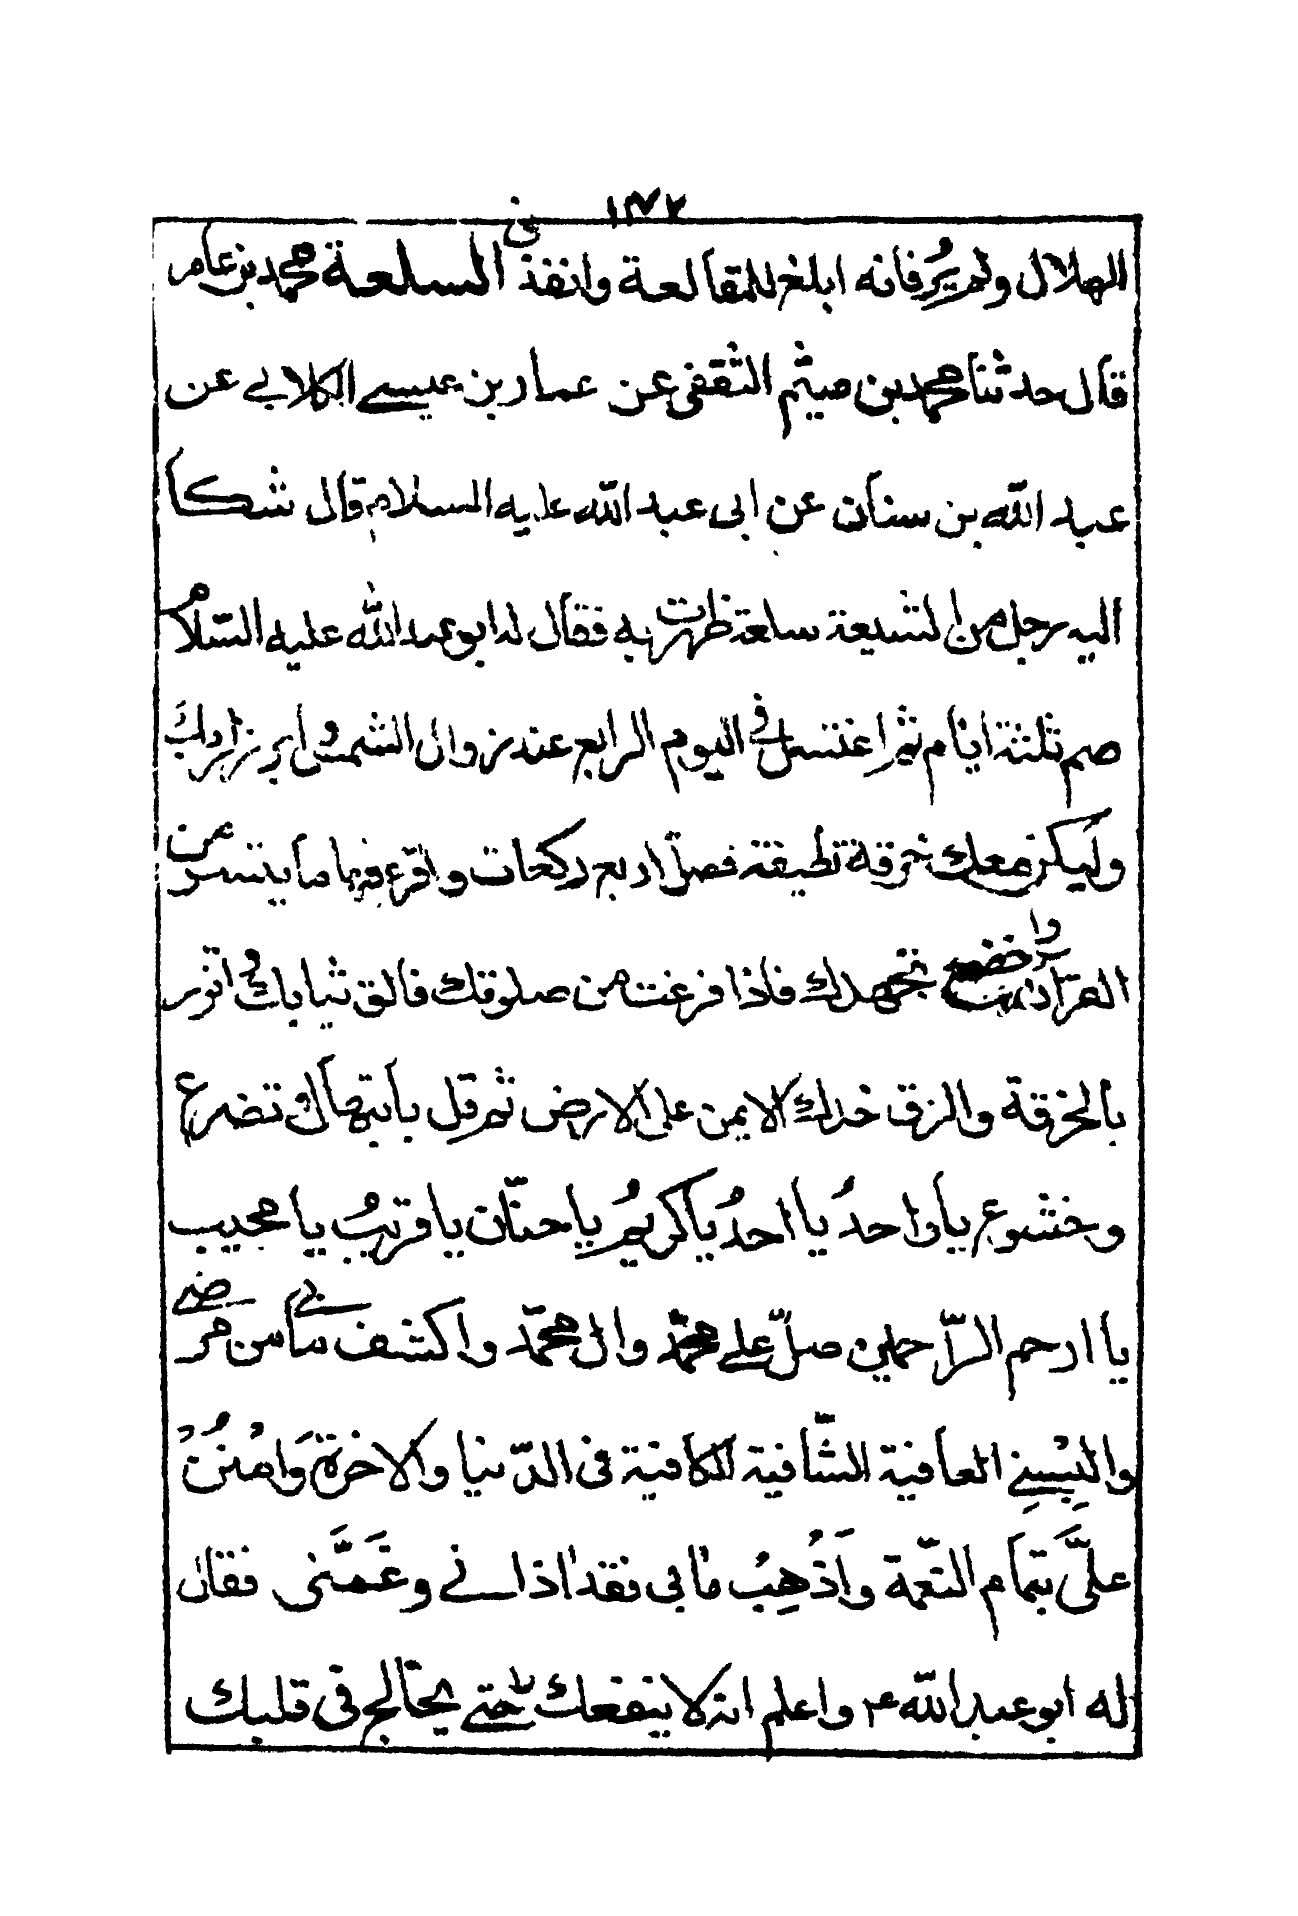 ١٣٧٢
الهلال ولم يُرِ فانه ابلغ للمقالعة وانفذ فى السلعة محمد بن عامر
قال حدثنا محمد بن ميثم الثقفى عن عمار بن عيسے الكلابے عن
عبد الله بن سنان عن ابى عبد الله عليه السلام قال شكا
اليه رجل من الشيعة سلعة ظهرت به فقال له ابو عبد الله عليه السّلام
صم ثلثة ايام ثم اغتسل فى اليوم الرابع عند زوال الشمس وابرز لربك
وليكن معك خرقة نظيفة فصلّ اربع ركعات واقرء فيها ما يتيسر من
القرآن واخضع بجهدك فاذا فرغت من صلوتك فالق ثيابك واتزر
بالخرقة والزق خدك الايمن على الارض ثم قل بابتهال وتضرع
وخشوع يا واحدُ يا احدُ يا كريمُ يا حنّان يا قريبُ يا مجيب
يا ارحم الرّاحمين صلّ علے محمّد وال محمّد واكشف مابى من مرضے
والبِسنِے العافية الشّافية الكافية فى الدّنيا والاخرة وَامْنُنْ
علىَّ بتمام النّعمة واَذْهِبْ ما بى فقد اذانے وغَمَّنى فقال
له ابو عبد الله ع واعلم انه لا ينفعك حتے لا يخالج فى قلبك